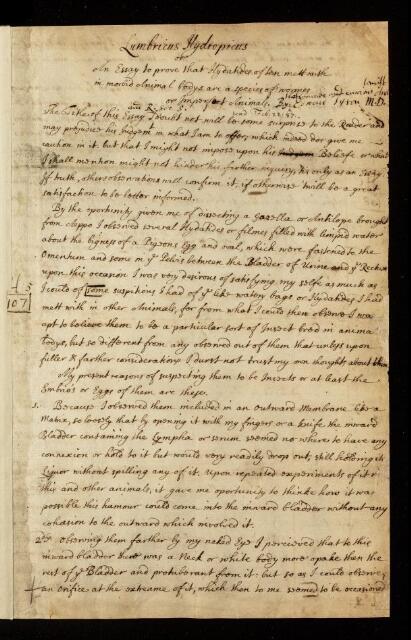 Lumbricus Hydropicus
or
An Essay to prove that Hydatides often mett with
in morbid Animal bodys are a species of wormes
or Imperfect Animals. By Edward Tyson M.D.
read Feb.
The Title of this Essay I doubt not will be some surprise to the Reader and
may prejudice his in what I am to offer, which indeed dos give me
caution in it. but that I might not impose upon his Beliefe or what
I shall mention might not hinder his further inquiry; tis only as an Essay.
If truth, other observations will confirm it, if otherwise twill be a great
satisfaction to be better informed.
By the oportunity given me of dissecting a Gazella or Antilope brought
from Aleppo I observed severall Hydatides or filmes filled with limpid water
about the bigness of a Pigeons Egg and oval, which were fastened to the
Omentum and some in ye Pelvis between the Bladder of Urine and ye Rectum
upon this occasion I was very desirous of satisfying my selfe as much as
I could of some suspitions I had of ye like watery bags or Hydatides I had
mett with in other Animals, for from what I could then observe I was
apt to believe them to be a particular sort of Insect bred in animal
bodys, but so different from any observed out of them that unless upon
fuller & farther consideration I durst not trust my own thoughts about them
My present reasons of suspecting them to be Insects or at least the
Embrio's or Eggs of them are these.
107
1. Because I observed them included in an outward Membrane like a
Matrix, so loosly that by opening it with my fingers or a knife the inward
Bladder containing the Lympha or serum seemed no where to have any
connexion or hold to it but would very readily drop out, still holding its
liquor without spilling any of it. Upon repeated experiments of it in
this and other animals, it gave me oportunity to thinke how it was
possible this humour could come into the inward bladder without any
cohæsion to the outward which involved it.
2. Observing them farther by my naked Eye I perceived that to this
inward bladder there was a Neck or white body more opake then the
rest of ye Bladder and protuberant from it: but so as I could observe
an Orifice at the extreame of it, which then to me seemed to be occasioned